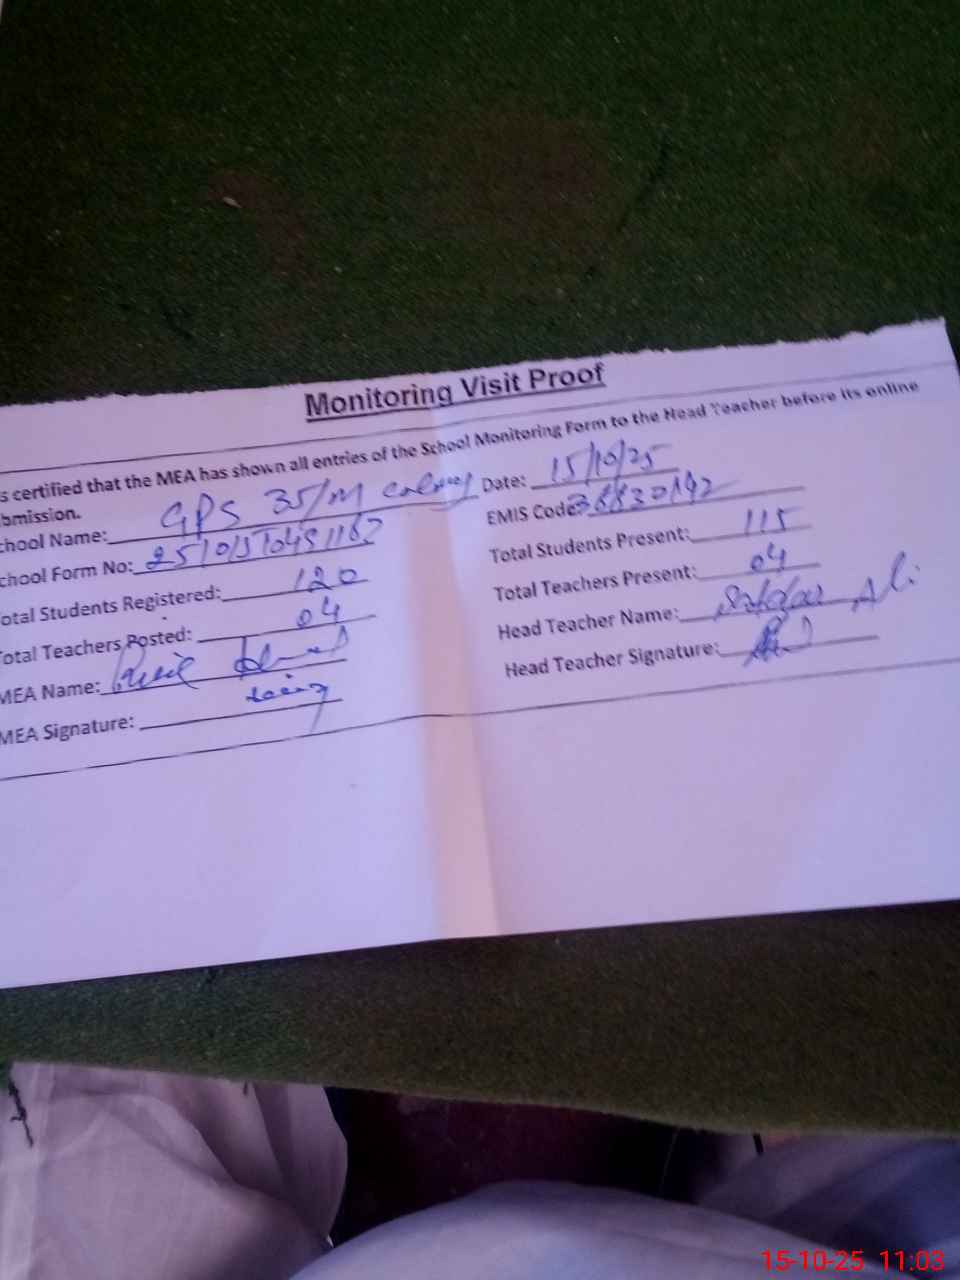 Monitoring Visit Proof
s certified that the MEA has shown all entries of the School Monitoring Form to the Head Teacher before its online
bmission.
chool Name: GPS 35/M Colony Date: 15/10/25
chool Form No: EMIS Code:
otal Students Registered: 120 Total Students Present: 115
otal Teachers Posted: 04 Total Teachers Present: 04
MEA Name: Head Teacher Name: Ali
MEA Signature: Head Teacher Signature:
15-10-25 11:03